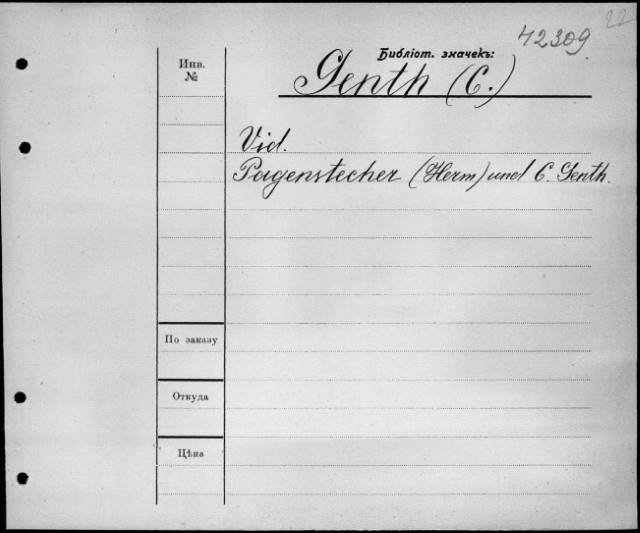 22
42309
Библіот. значекъ:
Инв.
№
Genth (C.)
Vid.
Pagenstecher (Herm) und C. Genth.
По заказу
Откуда
Цѣна